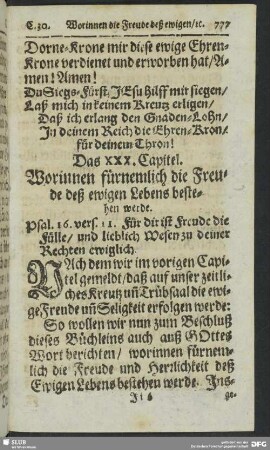 C.30. Worinnen die Freude deß ewigen/ꝛc. 777
Dorne-Krone mir diese ewige Ehren-
Krone verdienet und erworben hat/ A-
men! Amen!
Du Siegs-Fürst/ JEsu hilff mir siegen/
Laß mich in keinem Kreutz erligen/
Daß ich erlang den Gnaden-Lohn/
In deinem Reich die Ehren-Kron/
für deinem Thron!
Das XXX. Capitel.
Worinnen fürnemlich die Freu-
de deß ewigen Lebens beste-
hen werde.
Psal. 16. vers. 11. Für dir ist Freude die
Fülle/ und lieblich Wesen zu deiner
Rechten ewiglich.
NAch dem wir im vorigen Capi-
tel gemeldt/ daß auf unser zeitli-
ches Kreutz uñ Trübsaal die ewi-
ge Freude uñ Seligkeit erfolgen werde:
So wollen wir nun zum Beschluß
dieses Büchleins auch auß GOttes
Wort berichten/ worinnen fürnem-
lich die Freude und Herrlichkeit deß
Ewigen Lebens bestehen werde. Ins-
Ji 6 ge-
SLUB